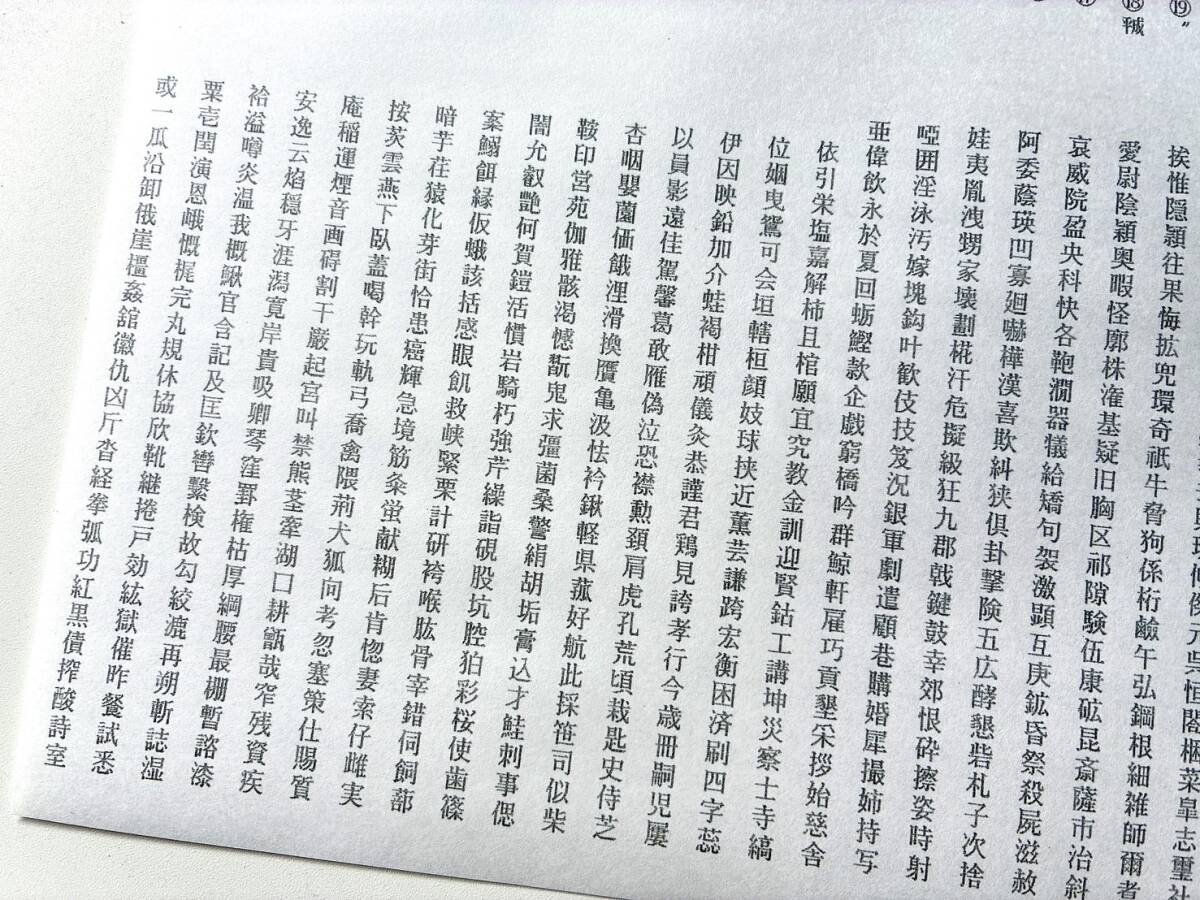 ⑲〃
⑱
呉恒閤梱菜皐志璽社
挨惟隠頴往果悔拡兜環奇祇牛脅狗係桁鹸午弘鋼根細雑師爾者
愛尉陰穎奥暇怪廓株潅基疑旧胸区祁隙験伍康砿昆斎薩市治斜
哀威院盈央科快各鞄澗器犠給矯句袈激顕互庚鉱昏祭殺屍滋赦
阿委蔭瑛凹寡廻嚇樺漢喜欺糾狭倶卦撃険五広酵懇砦札子次捨
娃夷胤洩甥家壊劃椛汗危擬級狂九郡戟鍵鼓幸郊恨砕擦姿時射
唖囲淫泳汚嫁塊鈎叶歓伎技笈況銀軍劇遣顧巷購婚犀撮姉持写
亜偉飲永於夏回蛎鰹款企戯窮橋吟群鯨軒雇巧貢墾采拶始慈舎
依引栄塩嘉解柿且棺願宜究教金訓迎賢鈷工講坤災察士寺縞
位姻曳鴛可会垣轄桓顔妓球挟近薫芸謙跨宏衡困済刷四字蕊
伊因映鉛加介蛙褐柑頑儀灸恭謹君鶏見誇孝行今歳冊嗣児屡
以員影遠佳駕馨葛敢雁偽泣恐襟勲頚肩虎孔荒頃栽匙史侍芝
杏咽嬰薗価餓浬滑換贋亀汲怯衿鍬軽県菰好航此採笹司似柴
鞍印営苑伽雅骸渇憾翫鬼求彊菌桑警絹胡垢膏込才鮭刺事偲
闇允叡艶何賀鎧活慣岩騎朽強芹繰詣硯股坑腔狛彩桜使歯篠
案鰯餌縁仮蛾該括感眼飢救峡緊栗計研袴喉肱骨宰錯伺飼蔀
暗芋荘猿化芽街恰患癌輝急境筋粂蛍献糊后肯惚妻索仔雌実
按茨雲燕下臥蓋喝幹玩軌弓喬禽隈荊犬狐向考忽塞策仕賜質
庵稲運煙音画碍割干巌起宮叫禁熊茎牽湖口耕甑哉窄残資疾
安逸云焔穏牙涯潟寛岸貴吸卿琴窪罫権枯厚綱腰最棚暫諮漆
袷溢噂炎温我概鰍官含記及匡欽轡繋検故勾絞漉再朔斬誌湿
粟壱閏演恩峨慨梶完丸規休協欣靴継捲戸効紘獄催昨餐試悉
或一瓜沿卸俄崖橿姦舘徽仇凶斤沓経拳弧功紅黒債搾酸詩室